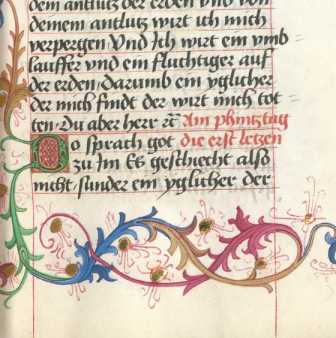 dem antlutz der erden vnd von
deinem antlutz wirt ich mich
verpergen Vnd Ich wirt ein vmb
lauffer vnd ein fluchtiger auf
der erden darumb ein yglicher
der mich findt der wirt mich tot
ten Du aber herr ꝛc Am phintztag
Do sprach got die erst letzen
zu Im Es geschiecht also
nicht sunder ein yglicher der